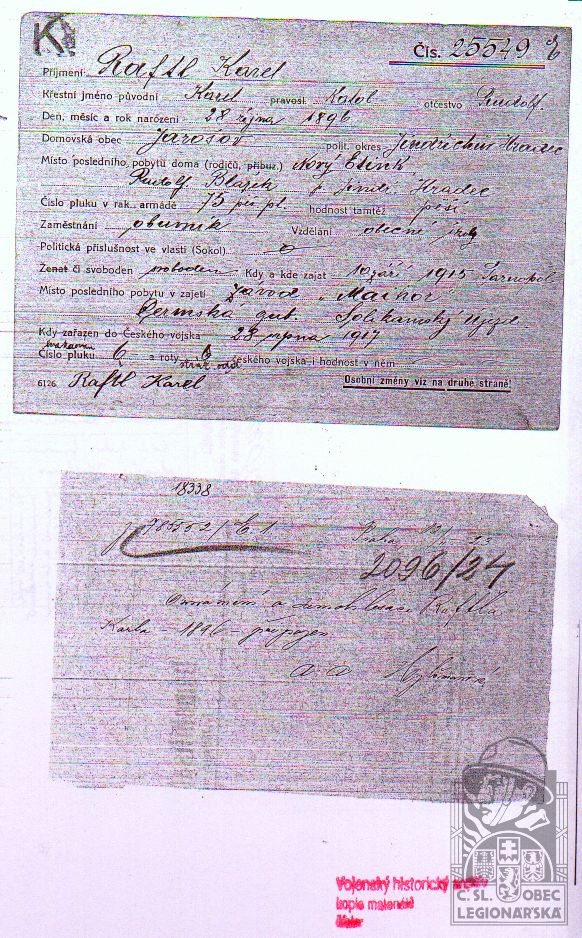 K
Čís. 25549
Příjmení Raftl Karel
Křestní jméno původní Karel pravosl. otčestvo Rudolf
Den, měsíc a rok narození 28 října 1896
Domovská obec Jarošov polit. okres Jindřichův Hradec
Místo posledního pobytu doma (rodičů, příbuz.) Nový
Rudolf Jindř. Hradec
Číslo pluku v rak. armádě 75 pěš. pl. hodnost tamtéž pěší
Zaměstnání obuvník Vzdělání obecné
Politická příslušnost ve vlasti (Sokol) 0
Ženat či svoboden svoboden Kdy a kde zajat 10 září 1915 Tarnopol
Místo posledního pobytu v zajetí závod „Maikor"
Permská gub. Solikamský Ujezd
Kdy zařazen do Českého vojska 28 srpna 1917
Číslo pluku 6 a roty 6 českého vojska i hodnost v něm
6126 Raftl Karel Osobní změny viz na druhé straně!
18338
Praha
2096/24
Oznámení o demobilisaci Raftla
Karla - 1896 - připojen
a. a.
Vojenský historický archiv
kopie materiálů
ČS. OBEC
LEGIONÁŘSKÁ